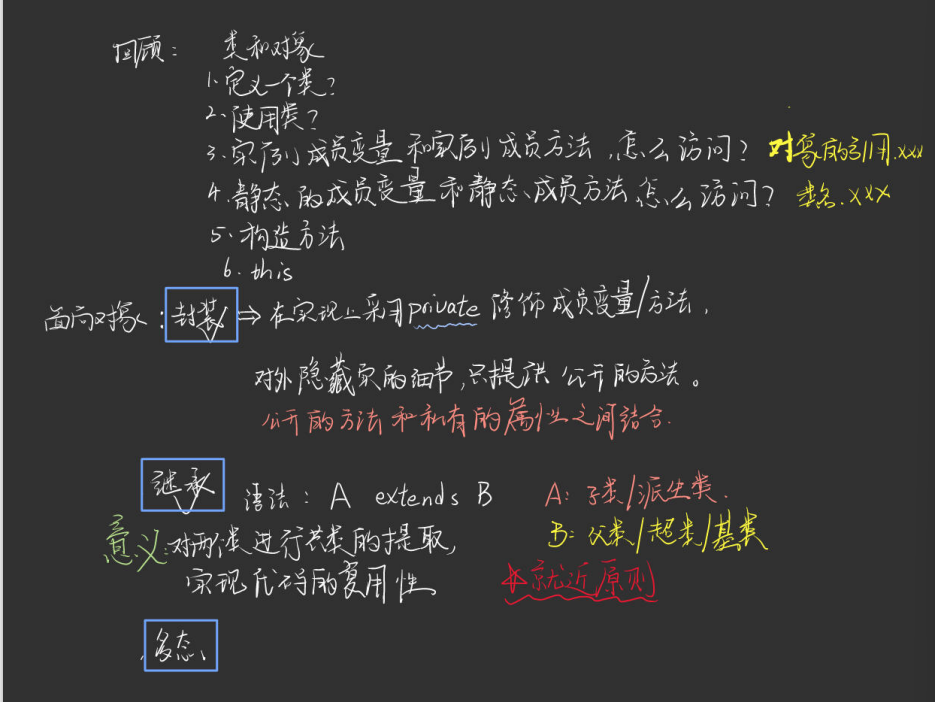 回顾： 类和对象
1. 定义一个类？
2. 使用类？
3. 实例成员变量和实例成员方法，怎么访问？ 对象的引用.xxx
4. 静态的成员变量和静态成员方法怎么访问？ 类名.xxx
5. 构造方法
6. this
面向对象：封装 ⇒ 在实现上采用private修饰成员变量/方法，
对外隐藏实的细节,只提供公开的方法。
公开的方法和私有的属性之间结合.
继承 语法： A extends B A: 子类/派生类.
意义:对两类进行共类的提取, B: 父类/超类/基类
实现代码的复用性 *就近原则
多态、